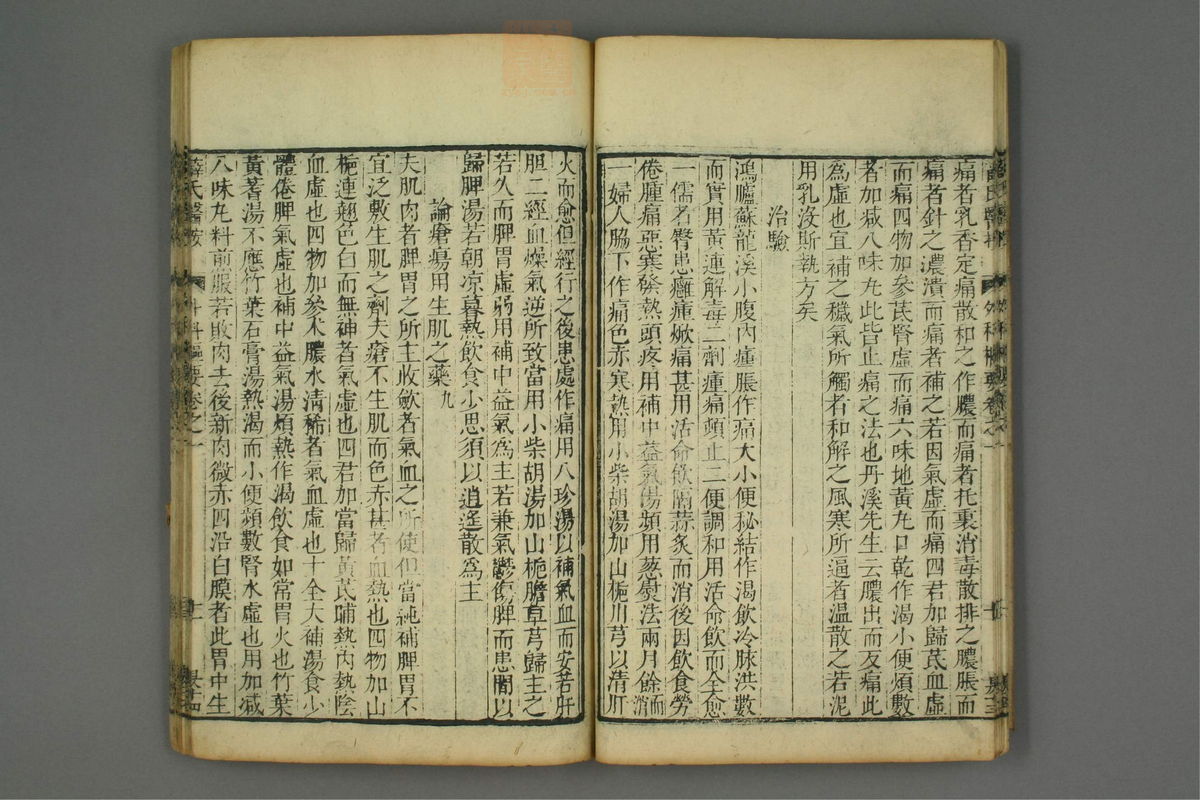 痛者乳香定痛散和之作膿而痛者托裏消毒散排之膿脹而
痛者針之膿潰而痛者補之若因氣虛而痛四君加歸芪血虛
而痛四物加參芪腎虛而痛六味地黃丸口乾作渴小便頻數
者加減八味丸此皆止痛之法也丹溪先生云膿出而反痛此
爲虛也宜補之穢氣所觸者和解之風寒所逼者溫散之若泥
用乳沒斯執方矣
治驗
鴻臚蘇龍溪小腹內瘇脹作痛大小便秘結作渴飲冷脉洪數
而實用黃連解毒二劑瘇痛頓止二便調和用活命飲而全愈
一儒者臀患癰瘇焮痛甚用活命飲隔蒜炙而消後因飲食勞
倦腫痛惡寒發熱頭疼用補中益氣湯頻用葱熨法兩月餘而消
一婦人脇下作痛色赤寒熱用小柴胡湯加山梔川芎以清肝
火而愈但經行之後患處作痛用八珍湯以補氣血而安若肝
胆二經血燥氣逆所致當用小柴胡湯加山梔膽草芎歸主之
若久而脾胃虛弱用補中益氣爲主若兼氣鬱傷脾而患間以
歸脾湯若朝凉暮熱飲食少思須以逍遙散爲主
論瘡瘍用生肌之藥九
夫肌肉者脾胃之所主收歛者氣血之所使但當純補脾胃不
宜泛敷生肌之劑夫瘡不生肌而色赤甚者血熱也四物加山
梔連翹色白而無神者氣虛也四君加當歸黃芪晡熱內熱陰
血虛也四物加參朮膿水清稀者氣血虛也十全大補湯食少
體倦脾氣虛也補中益氣湯煩熱作渴飲食如常胃火也竹葉
黃蓍湯不應竹葉石膏湯熱渴而小便頻數腎水虛也用加減
八味丸料煎服若敗肉去後新肉微赤四沿白膜者此胃中生
薛氏醫按
外科樞要卷之一